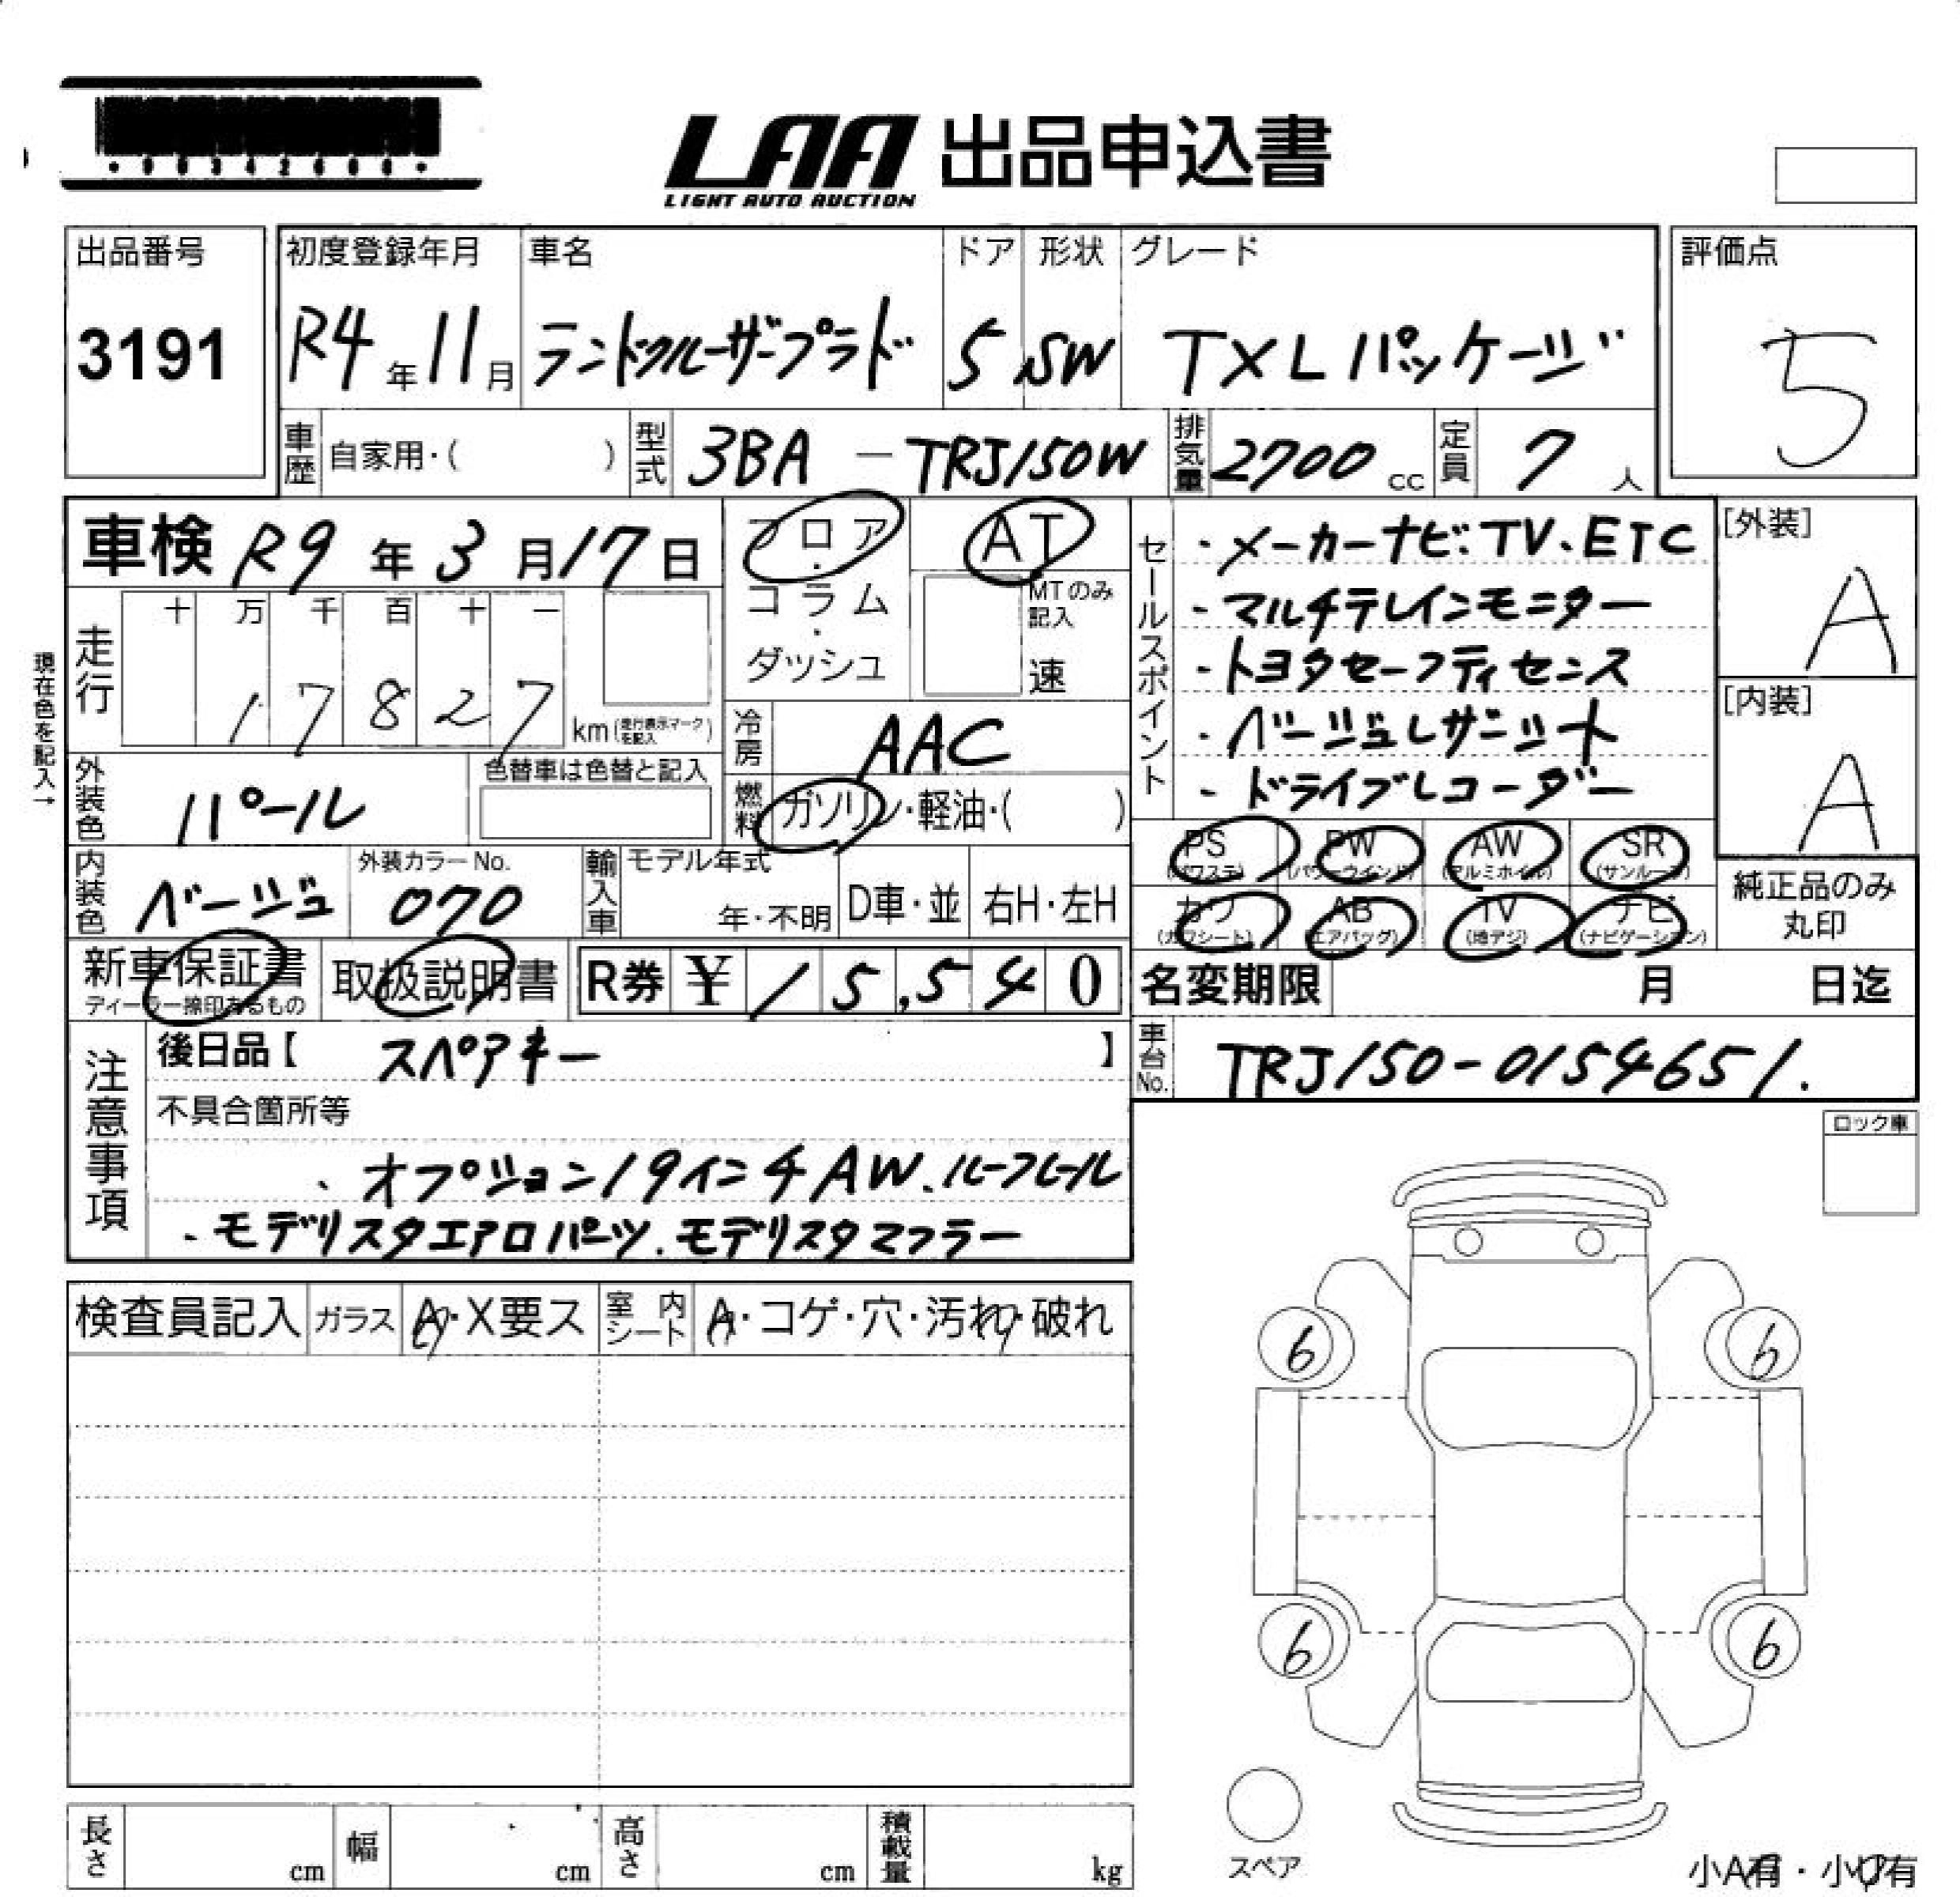 LAA 出品申込書
LIGHT AUTO AUCTION
出品番号
3191
初度登録年月
R4年11月
車名
ランドクルーザープラド
ドア
5
形状
SW
グレード
TXLパッケージ
評価点
5
車歴 自家用・( )
型式 3BA - TRJ150W
排気量 2700 cc
定員 7 人
車検 R9年3月17日
フロア・コラム・ダッシュ
AT
MTのみ記入
速
セールスポイント
・メーカーナビ.TV.ETC
・マルチテレインモニター
・トヨタセーフティセンス
・ベージュレザーシート
・ドライブレコーダー
[外装]
A
[内装]
A
現在色を記入→
走行
十 万 千 百 十 一
1 7 8 2 7
km (走行表示マークを記入)
冷房 AAC
燃料 ガソリン・軽油・( )
外装色 パール
色替車は色替と記入
PS (パワステ) PW (パワーウインド) AW (アルミホイル) SR (サンルーフ)
カワ (カワシート) AB (エアバッグ) TV (地デジ) ナビ (ナビゲーション)
純正品のみ
丸印
内装色 ベージュ
外装カラーNo.
070
輸入車 モデル年式
年・不明 D車・並 右H・左H
新車保証書
ディーラー捺印あるもの
取扱説明書
R券 ¥ 15,540
名変期限 月 日迄
車台No. TRJ150-0154651.
注意事項
後日品【 スペアキー 】
不具合箇所等
、オプション19インチAW.ルーフレール
、モデリスタエアロパーツ.モデリスタマフラー
ロック車
検査員記入 ガラス A・X要ス 室内シート A・コゲ・穴・汚れ・破れ
6 6
6 6
スペア
長さ cm 幅 cm 高さ cm 積載量 kg
小A有・小U有